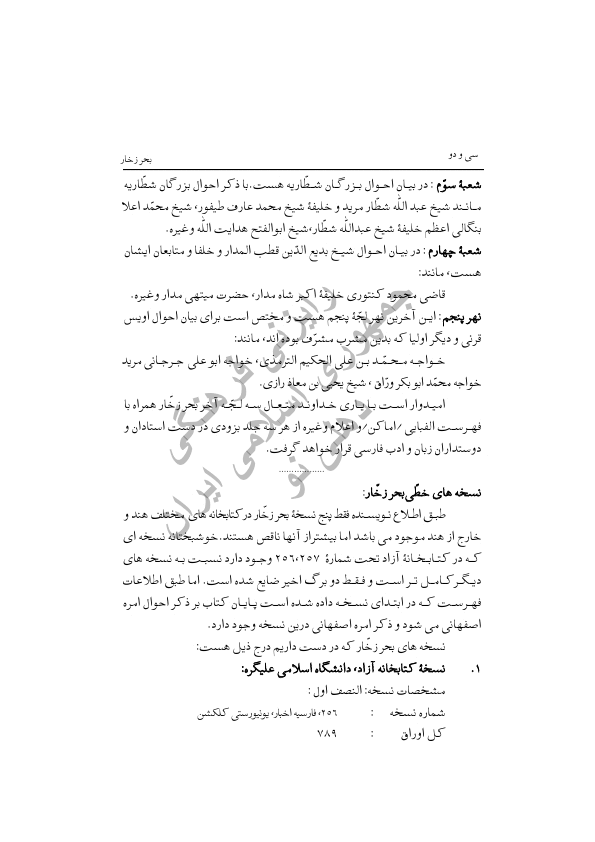 سی و دو
بحر زخار
شعبۀ سوّم : در بیان احوال بزرگان شطّاریه هست. با ذکر احوال بزرگان شطّاریه
مانند شیخ عبد اللّه شطّار مرید و خلیفۀ شیخ محمد عارف طیفور، شیخ محمّد اعلا
بنگالی اعظم خلیفۀ شیخ عبداللّه شطّار، شیخ ابوالفتح هدایت اللّه وغیره.
شعبۀ چهارم : در بیان احوال شیخ بدیع الدّین قطب المدار و خلفا و متابعان ایشان
هست، مانند:
قاضی محمود کنتوری خلیفۀ اکبر شاه مدار، حضرت میتهی مدار وغیره.
نهر پنجم: این آخرین نهر لجّۀ پنجم هست و مختص است برای بیان احوال اویس
قرنی و دیگر اولیا که بدین مشرب مشرّف بوده اند، مانند:
خواجه محمّد بن علی الحکیم الترمذی، خواجه ابو علی جرجانی مرید
خواجه محمّد ابو بکر ورّاق، شیخ یحیی بن معاذ رازی.
امیدوار است با یاری خداوند متعال سه لجّه آخر بحر زخّار همراه با
فهرست الفبایی /اماکن/ و اعلام وغیره از هر سه جلد بزودی در دست استادان و
دوستداران زبان و ادب فارسی قرار خواهد گرفت.
.................
نسخه های خطّی بحر زخّار:
طبق اطلاع نویسنده فقط پنج نسخۀ بحر زخّار در کتابخانه های مختلف هند و
خارج از هند موجود می باشد اما بیشتر از آنها ناقص هستند. خوشبختانه نسخه ای
که در کتابخانۀ آزاد تحت شمارۀ ۲۵۶،۲۵۷ وجود دارد نسبت به نسخه های
دیگر کامل تر است و فقط دو برگ اخیر ضایع شده است. اما طبق اطلاعات
فهرست که در ابتدای نسخه داده شده است پایان کتاب بر ذکر احوال امره
اصفهانی می شود و ذکر امره اصفهانی درین نسخه وجود دارد.
نسخه های بحر زخّار که در دست داریم درج ذیل هست:
۱. نسخۀ کتابخانه آزاد، دانشگاه اسلامی علیگره:
مشخصات نسخه: النصف اول :
شماره نسخه : ۲۵۶، فارسیه اخبار، یونیورستی کلکشن
کل اوراق : ۷۸۹
رایزنی فرهنگی
جمهوری اسلامی ایران
دهلی نو